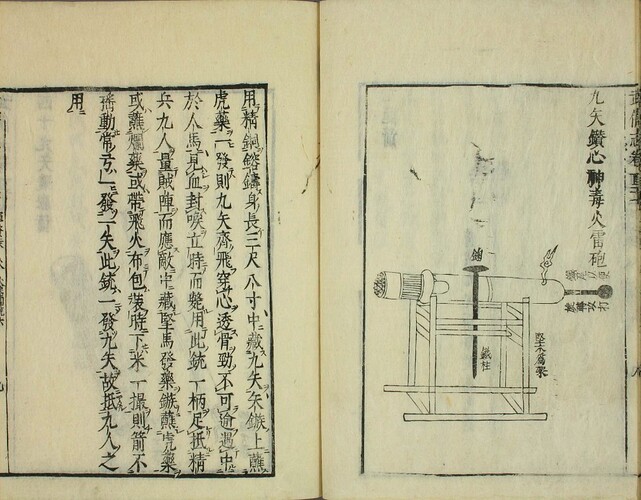 九矢鑽心神毒火雷砲
鐵柱
堅木為架
用精銅鎔鑄身長三尺八寸中藏九矢矢鏃上蘸
虎藥一發則九矢齊飛穿心透骨勁不可逾過中
於人馬見血封喉立時而斃用此銃一柄足抵精
兵九人量賊陣而應敵中藏堅馬發藥鏃蘸虎藥
或蘸爛藥或帶飛火布包裝時下米一撮則箭不
搖動常弓一發一矢此銃一發九矢故抵九人之
用